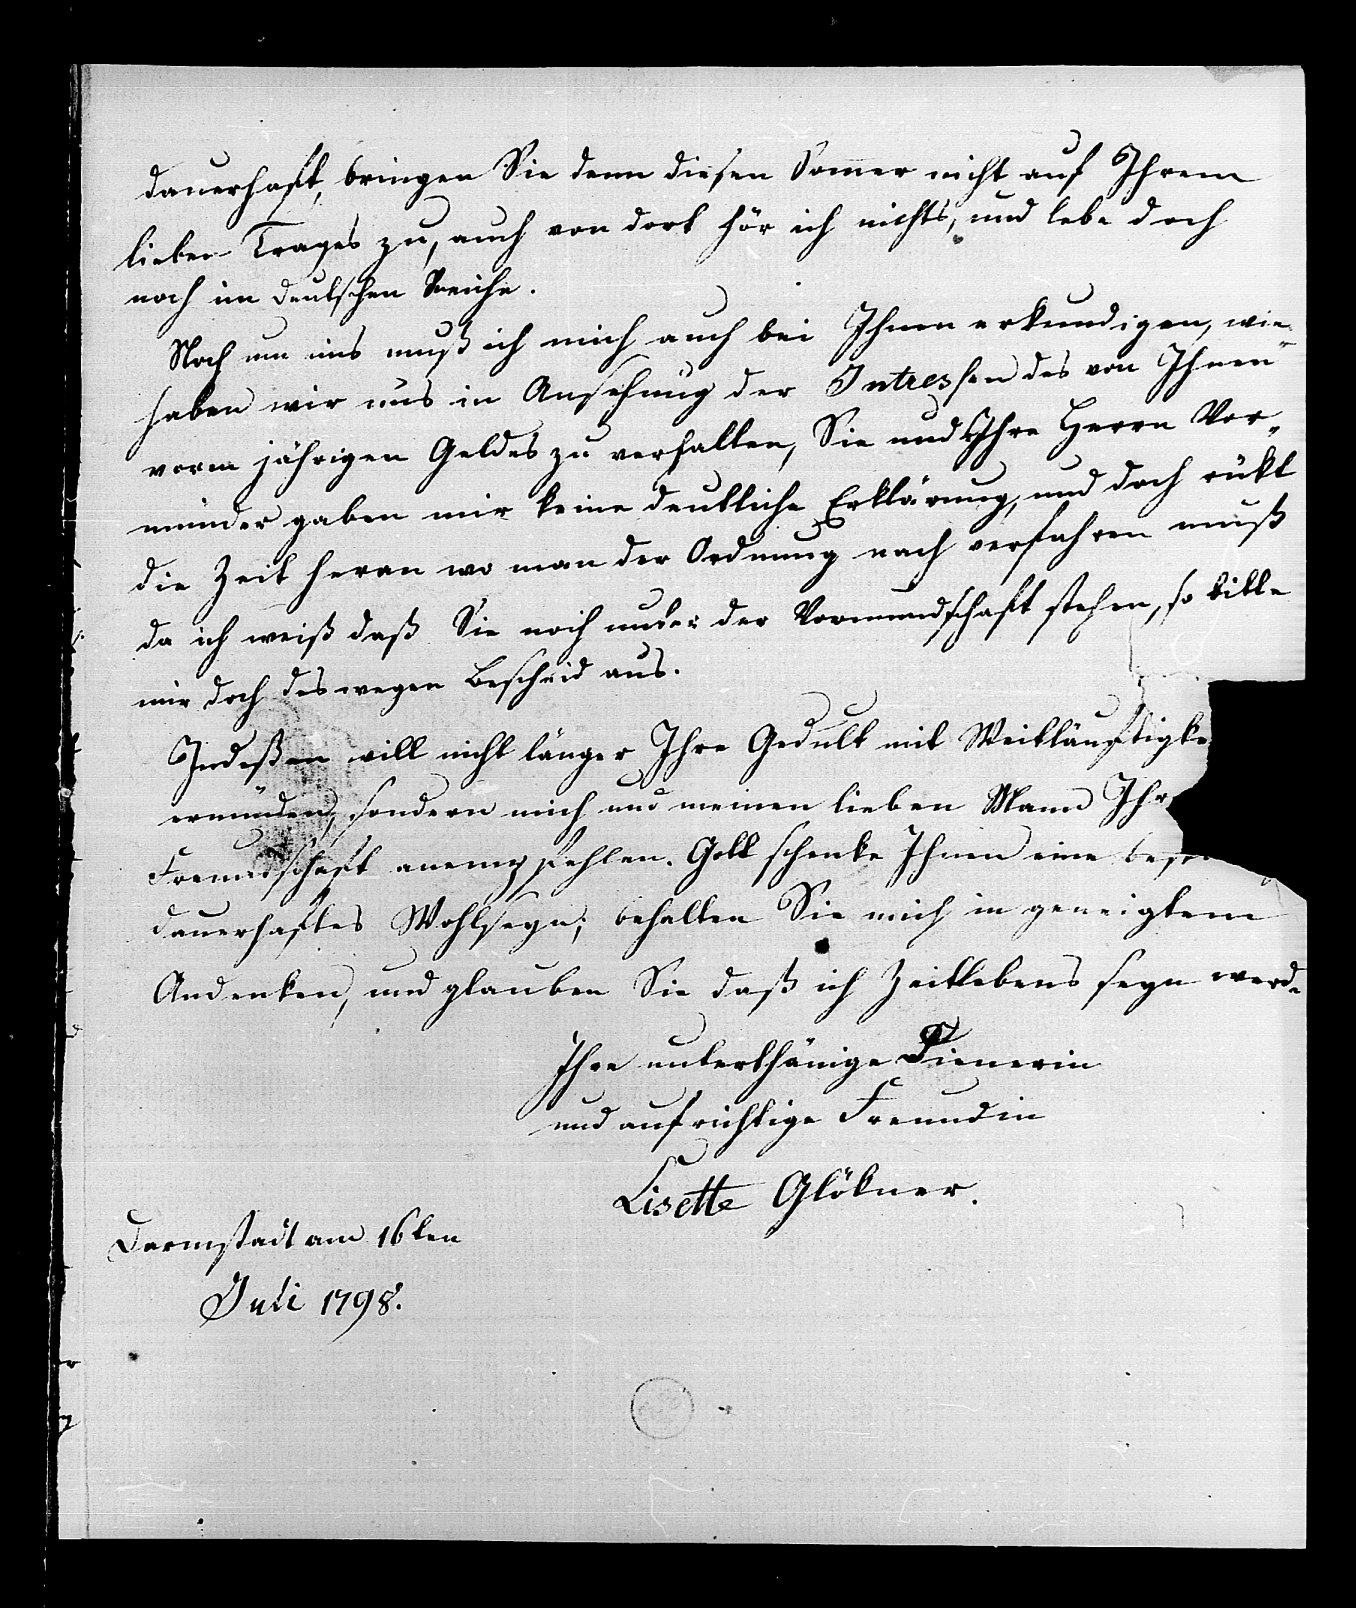 dauerhaft, bringen Sie denn diesen Sommer nicht auf Ihrem
lieben Trages zu, auch von dort hör ich nichts, und lebe doch
noch im deutschen Reiche.
Noch um uns muß ich mich auch bei Ihnen erkundigen, wie
haben wir uns in Ansehung der Intressen des von Ihnen
vorm jährigen Geldes zu verhalten, Sie und Ihre Herrn Vor„
münder gaben mir keine deutliche Erklärung, und doch rükt
die Zeit heran wo man der Ordnung nach verfahren muß
da ich weiß daß Sie noch unter der Vormundschaft stehen, so bitte
mir doch deswegen Bescheid aus.
Indeßen will nicht länger Ihre Gedult mit Weitläuftigke
ermüden, sondern mich und meinen lieben Mann Ihr
Freundschaft anempfehlen. Gott schenke Ihnen eine
dauerhaftes Wohlseyn; behalten Sie mich in geneigtem
Andenken, und glauben Sie daß ich Zeitlebens seyn werde
Ihre unterthänige Dienerin
und aufrichtige Freundin
Lisette Glökner.
Darmstadt am 16ten
Juli 1798.